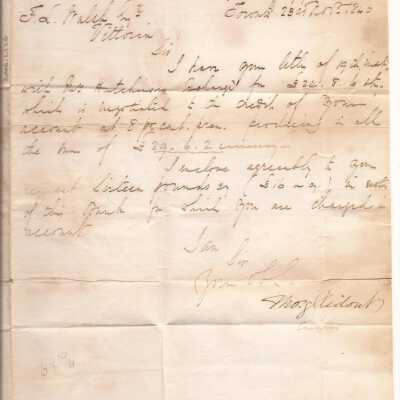 F. L. Walsh Esqr
Vittoria
Sir
I have your letter of 19th inst
with Mr Hutchinson Exchange for £24. 8. 6 stg.
which is negotiated to the credit of your
account at 8 pr cent. prem. in all
the sum of £29. 6. 2 currency
I enclose agreeably to your
request Sixteen pounds (£16) in notes
of this Bank for which you are charged in
account
I am
Sir
Your
Thos. G. Ridout
Cashier